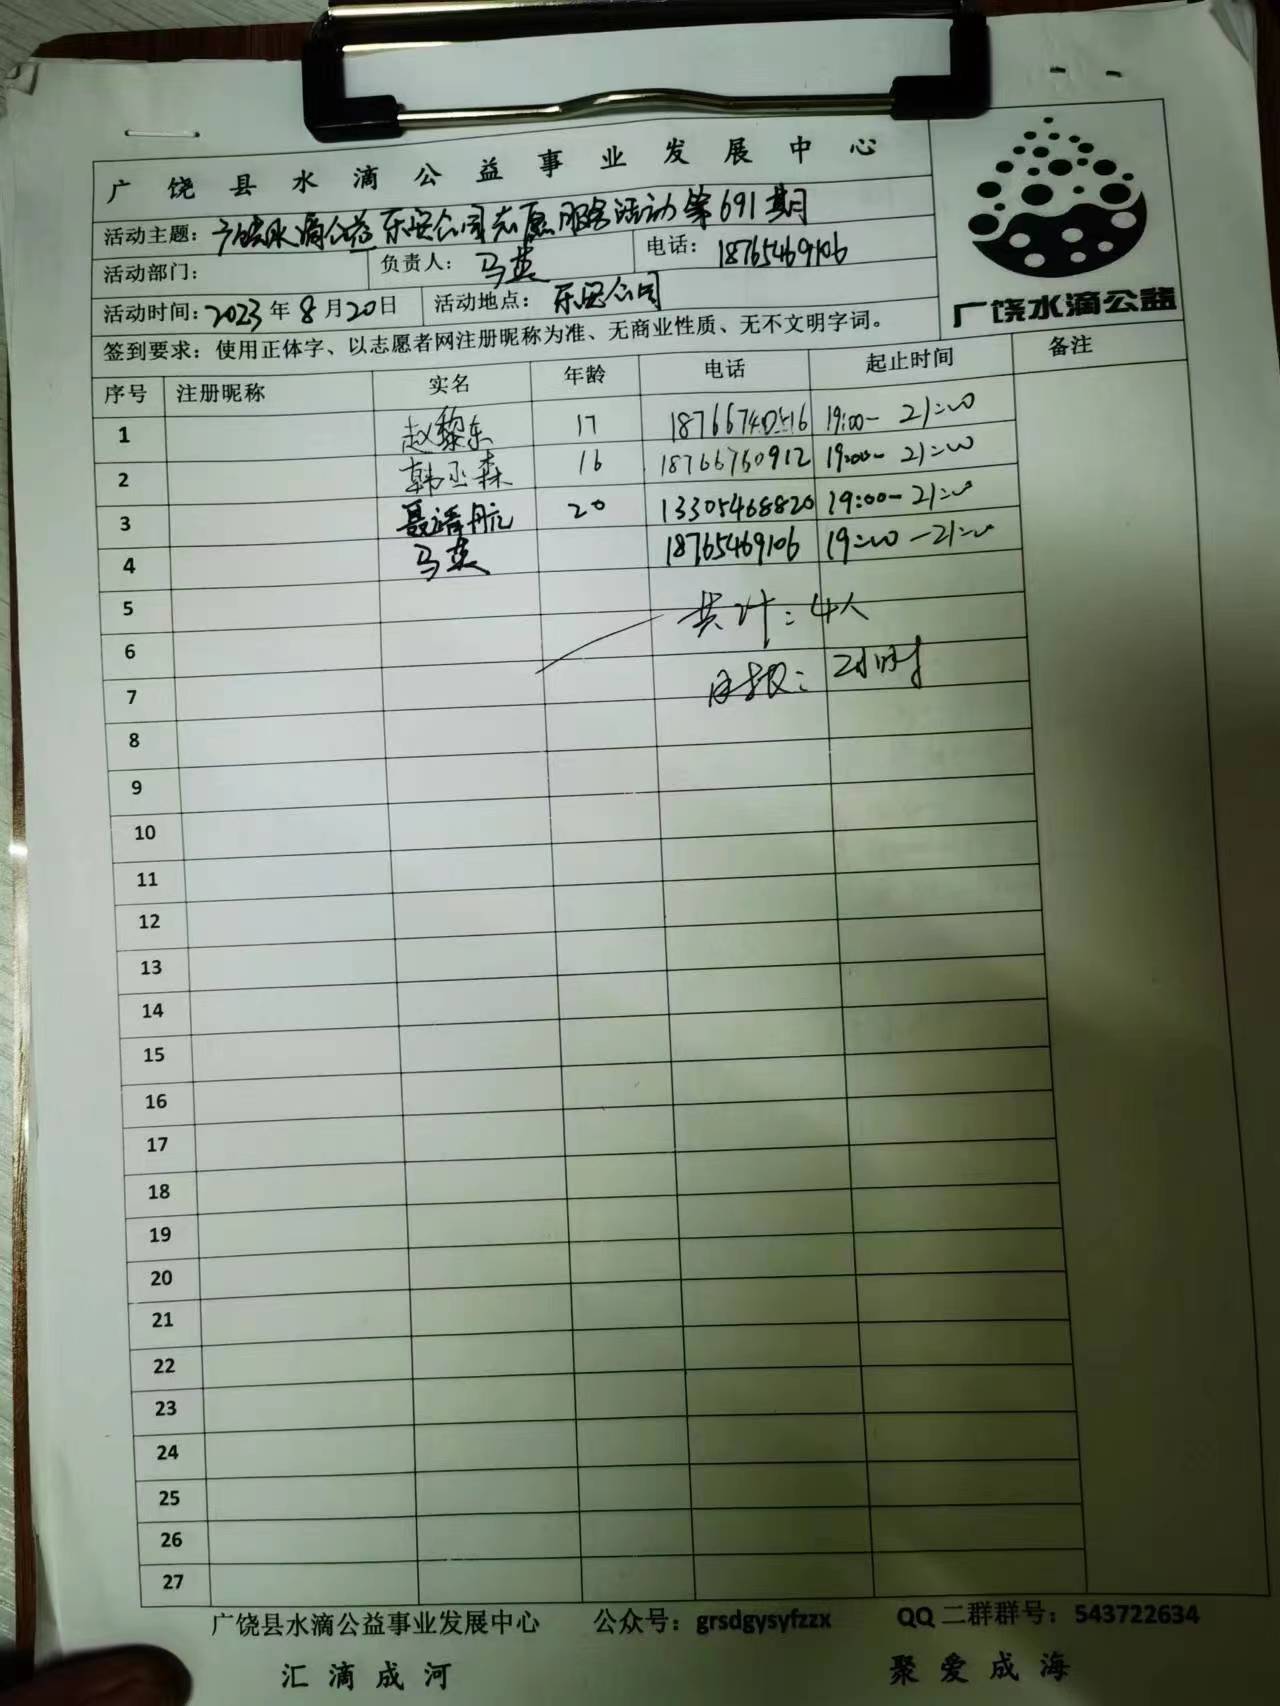 广饶县水滴公益事业发展中心
活动主题：广饶水滴公益乐安公园志愿服务活动第691期
活动部门： 负责人：马英 电话：18765469106
活动时间：2023年8月20日 活动地点：乐安公园
签到要求：使用正体字、以志愿者网注册昵称为准、无商业性质、无不文明字词。
广饶水滴公益
序号 注册昵称 实名 年龄 电话 起止时间 备注
1 赵黎东 17 18766740516 19:00-21:00
2 韩丞森 16 18766760912 19:00-21:00
3 聂靖航 20 13305468820 19:00-21:00
4 马英 18765469106 19:00-21:00
5 共计：4人
6
7 申报：2小时
8
9
10
11
12
13
14
15
16
17
18
19
20
21
22
23
24
25
26
27
广饶县水滴公益事业发展中心 公众号：grsdgysyfzzx QQ二群群号：543722634
汇滴成河 聚爱成海